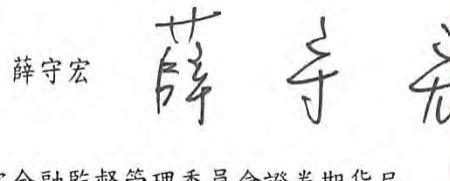 薛守宏 薛守宏
金融監督管理委員會證券期貨局